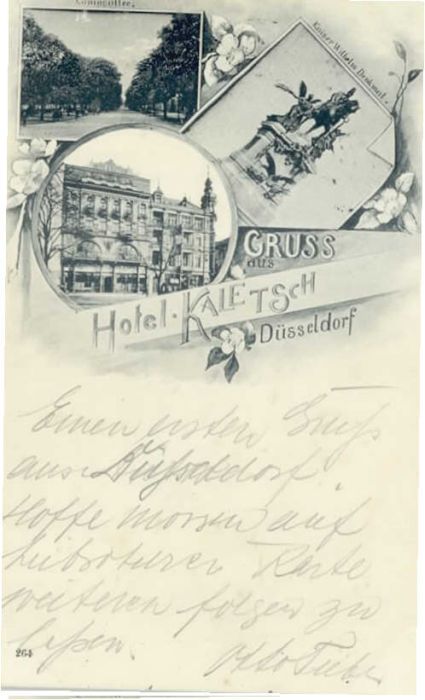 Königsallee.
Kaiser Wilhelm Denkmal.
GRUSS
aus
Hotel-KALETSCH
Düsseldorf
Einen ersten Gruß
aus Düsseldorf.
Hoffe morgen auf
Karte
weiteren folgen zu
laßen.
264
Otto